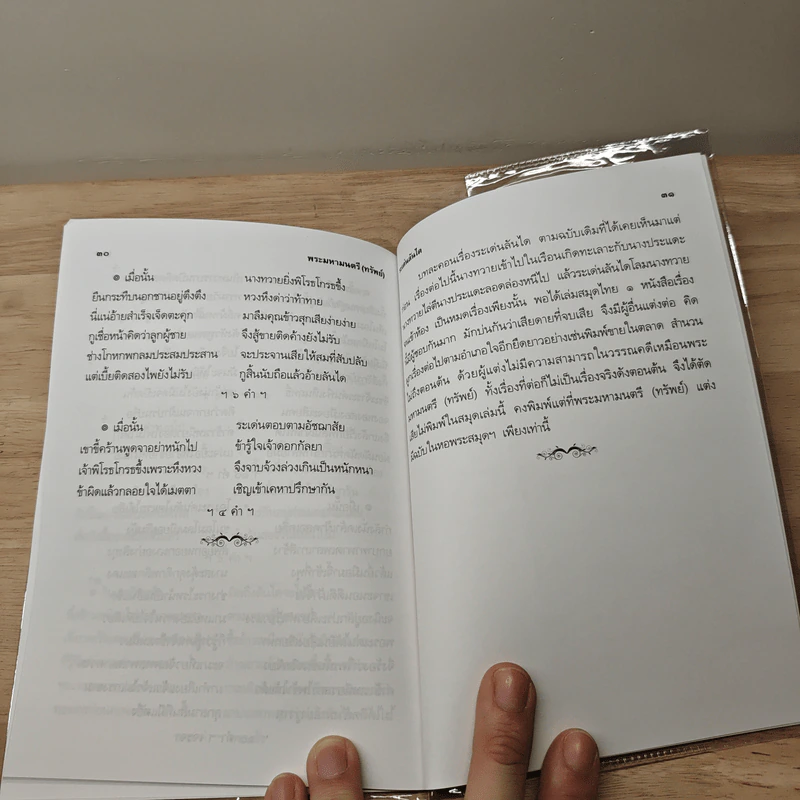 ๓๐
พระมหามนตรี (ทรัพย์)
๏ เมื่อนั้น นางทวายยิ่งพิโรธโกรธขึ้ง
ยืนกระทืบนอกชานอยู่ตึงตึง หวงหึงด่าว่าท้าทาย
นี่แน่อ้ายสำเร็จเจ็ดตะคุก มาลืมคุณข้าวสุกเสียง่ายง่าย
กูเชื่อหน้าคิดว่าลูกผู้ชาย จึงสู้ขายติดค้างยังไม่รับ
ช่างโกหกพกลมประสมประสาน จะประจานเสียให้สมที่สับปลับ
แต่เบี้ยติดสองไพยังไม่รับ กูสิ้นนับถือแล้วอ้ายลันได
ฯ ๖ คำ ฯ
๏ เมื่อนั้น ระเด่นตอบตามอัชฌาสัย
เขาขี้คร้านพูดจาอย่าหนักไป ข้ารู้ใจเจ้าดอกกัลยา
เจ้าพิโรธโกรธขึ้งเพราะหึงหวง จึงจาบจ้วงล่วงเกินเป็นหนักหนา
ข้าผิดแล้วกลอยใจได้เมตตา เชิญเข้าเคหาปรึกษากัน
ฯ ๔ คำ ฯ
๓๑
บทละคอนเรื่องระเด่นลันได ตามฉบับเดิมที่ได้เคยเห็นมาแต่
เรื่องต่อไปนี้นางทวายเข้าไปในเรือนเกิดทะเลาะกับนางประแดะ
นางทวายไล่ตีนางประแดะลอดล่องหนีไป แล้วระเด่นลันไดโลมนางทวาย
เป็นหมดเรื่องเพียงนั้น พอได้เล่มสมุดไทย ๑ หนังสือเรื่อง
มีผู้ชอบกันมาก มักบ่นกันว่าเสียดายที่จบเสีย จึงมีผู้อื่นแต่งต่อ คิด
เรื่องต่อไปตามอำเภอใจอีกยืดยาวอย่างเช่นพิมพ์ขายในตลาด สำนวน
ไม่ถึงตอนต้น ด้วยผู้แต่งไม่มีความสามารถในวรรณคดีเหมือนพระ
มหามนตรี (ทรัพย์) ทั้งเรื่องที่ต่อก็ไม่เป็นเรื่องจริงดังตอนต้น จึงได้ตัด
เสียไม่พิมพ์ในสมุดเล่มนี้ คงพิมพ์แต่ที่พระมหามนตรี (ทรัพย์) แต่ง
มีฉบับในหอพระสมุดฯ เพียงเท่านี้